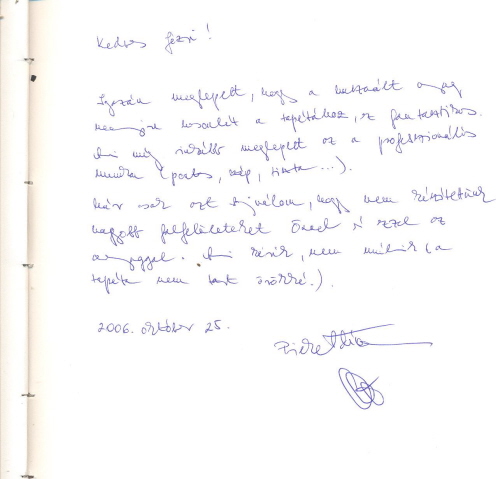 Kedves Jézsi!
Igazán meglepett, hogy a használt anyag
mennyire hasonlít a tapétához, ez fantasztikus.
Ami még inkább meglepett az a professzionális
munka (pontos, szép, tiszta...).
Már csak azt sajnálom, hogy nem készítettünk
nagyobb falfelületeket Önnel s ezzel az
anyaggal. Ami késik, nem múlik (a
tapéta nem tart örökké.).
2006. október 25.